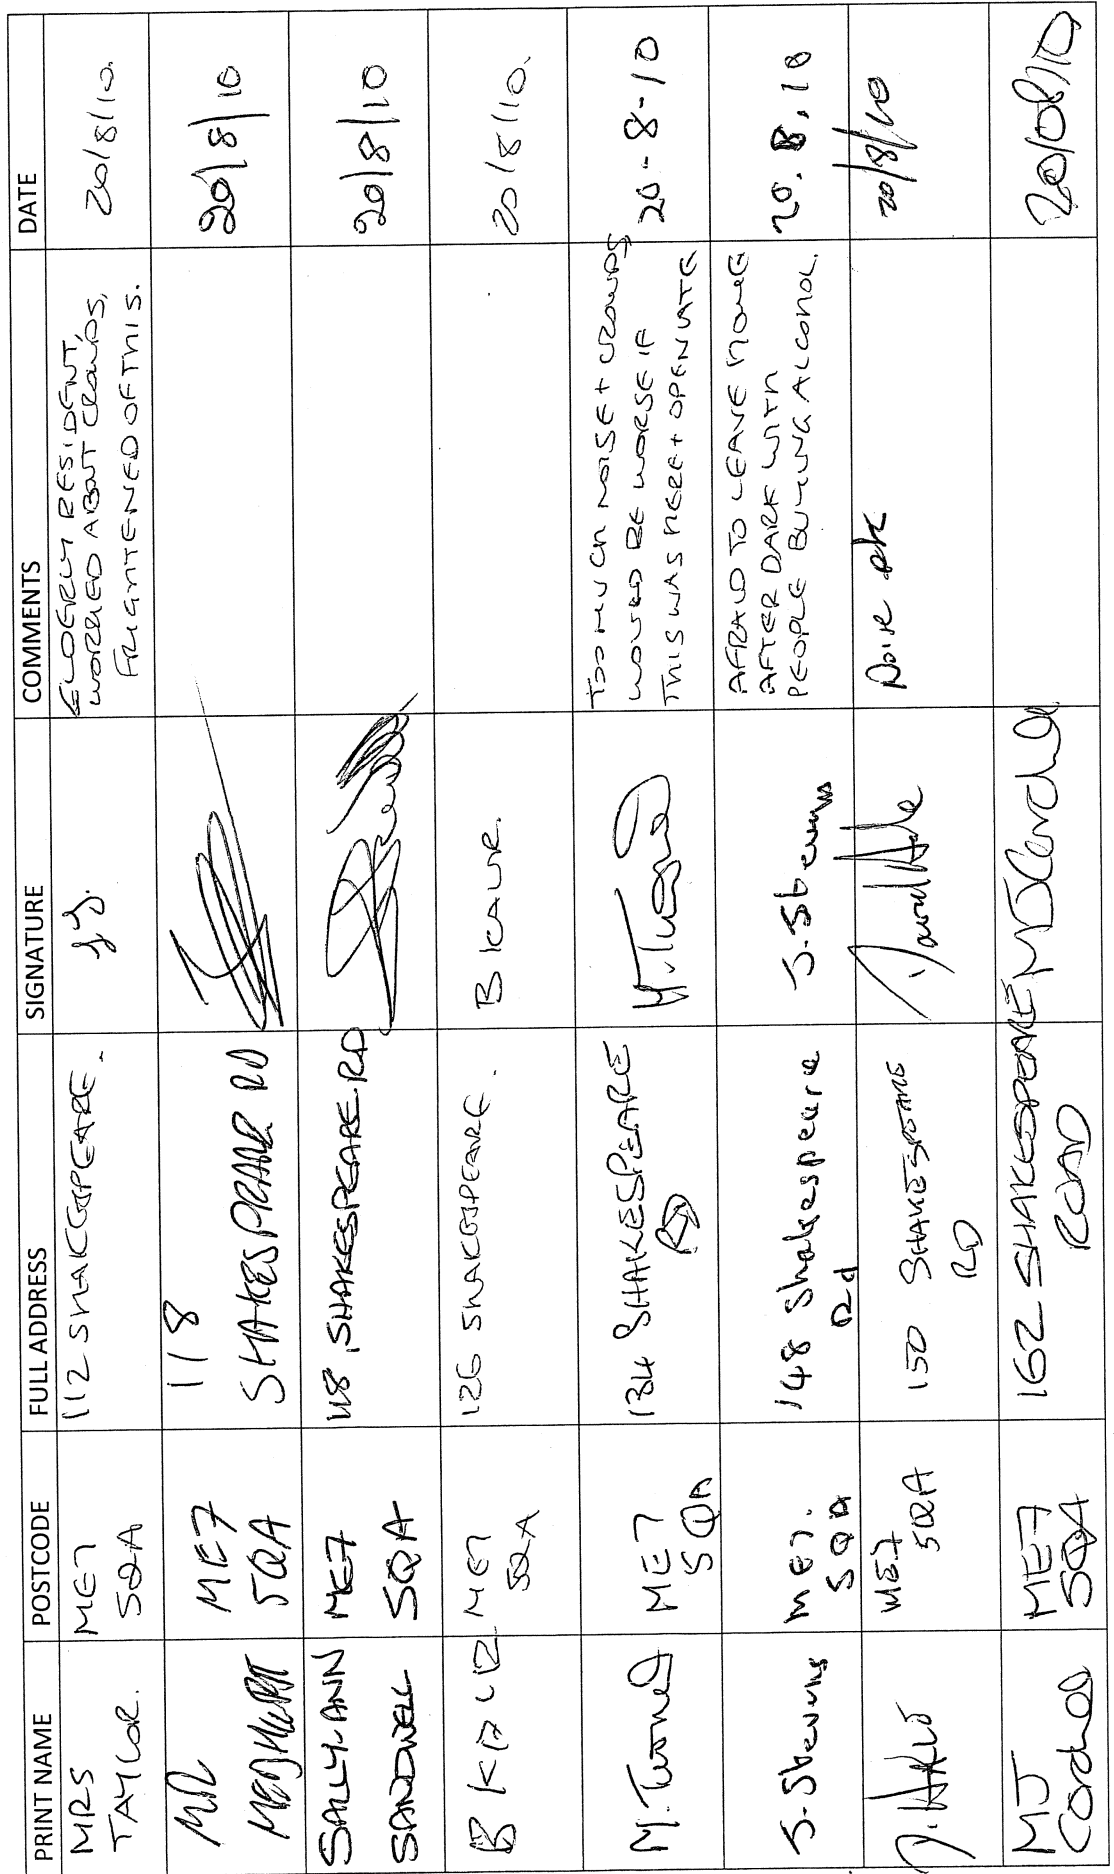 PRINT NAME POSTCODE FULL ADDRESS SIGNATURE COMMENTS DATE
MRS
TAYLOR.
ME7
5QA
112 SHAKESPEARE.
ELDERLY RESIDENT,
WORRIED ABOUT CROWDS,
FRIGHTENED OF THIS.
20/8/10.
MR
ME7
5QA
118
SHAKESPEARE RD
20/8/10
SALLY-ANN
SANDWELL
ME7
5QA
118, SHAKESPEARE RD
20/8/10
B KAUR
ME7
5QA
126 SHAKESPEARE.
B KAUR.
20/8/10.
M. Turner
ME7
5QA
134 SHAKESPEARE
RD
M. Turner
TOO MUCH NOISE + CROWDS
WOULD BE WORSE IF
THIS WAS HERE + OPEN LATE
20-8-10
S. Stevens
ME7.
5QA
148 Shakespeare
Rd
S. Stevens
AFRAID TO LEAVE HOME
AFTER DARK WITH
PEOPLE BUYING ALCOHOL.
20.8.10
ME7
5QA
150 SHAKESPEARE
RD
20/8/10
MJ
ME7
5QA
162 SHAKESPEARE
ROAD
20/08/10